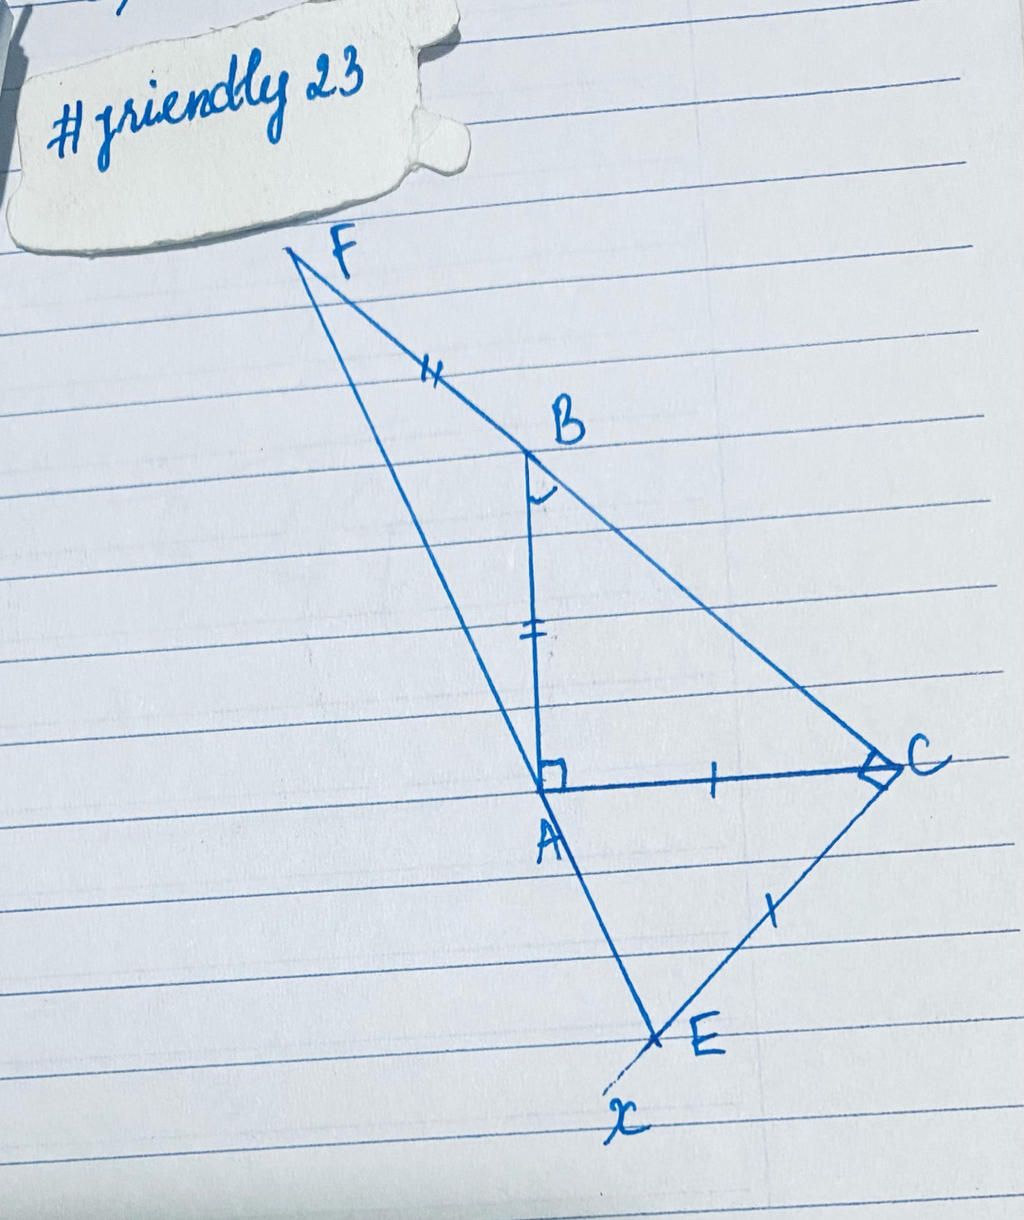 #friendly 23
F
B
C
A
E
x